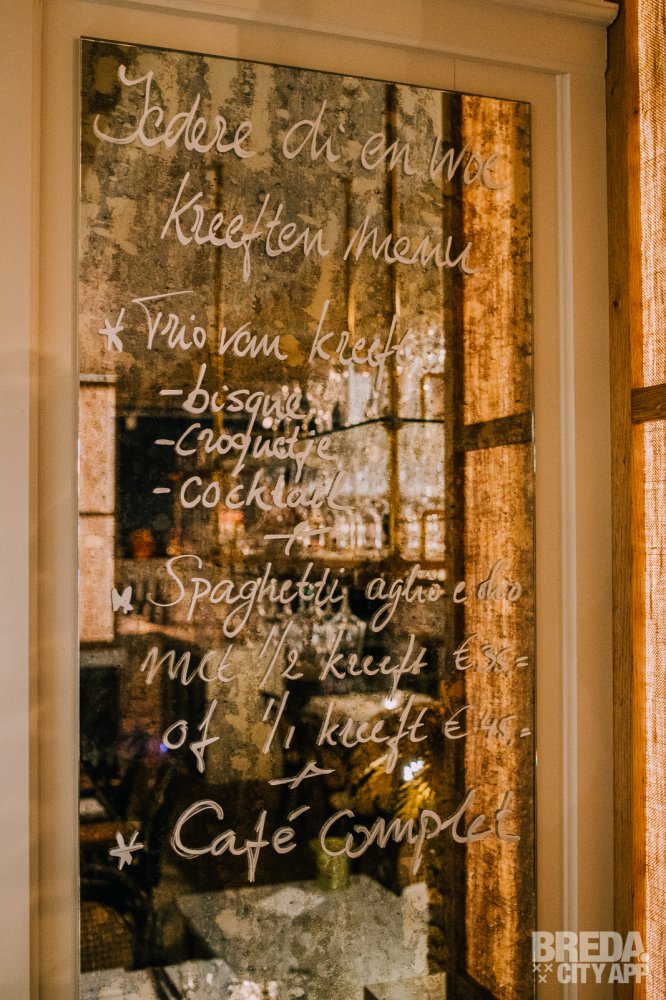 Iedere di en woe
kreeften menu
* Trio van kreeft
- bisque
- croquetje
- cocktail
+
* Spaghetti aglio e olio
met 1/2 kreeft €36,=
of 1/1 kreeft €45,=
+
* Café complet
BREDA.
CITY APP